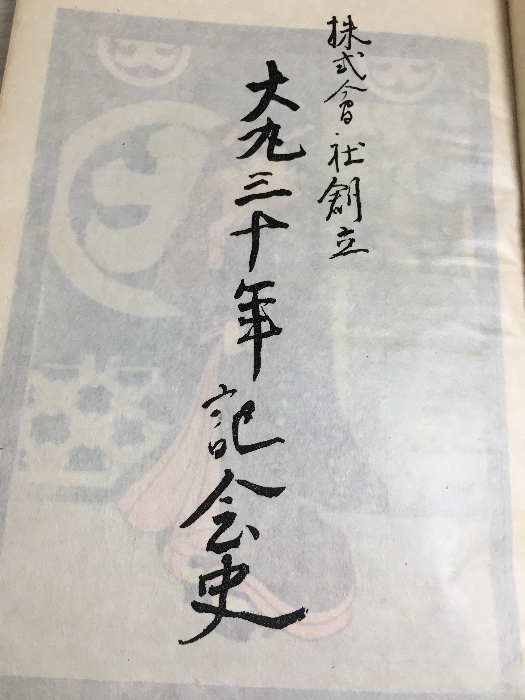 株式會社創立
大丸三十年記念史